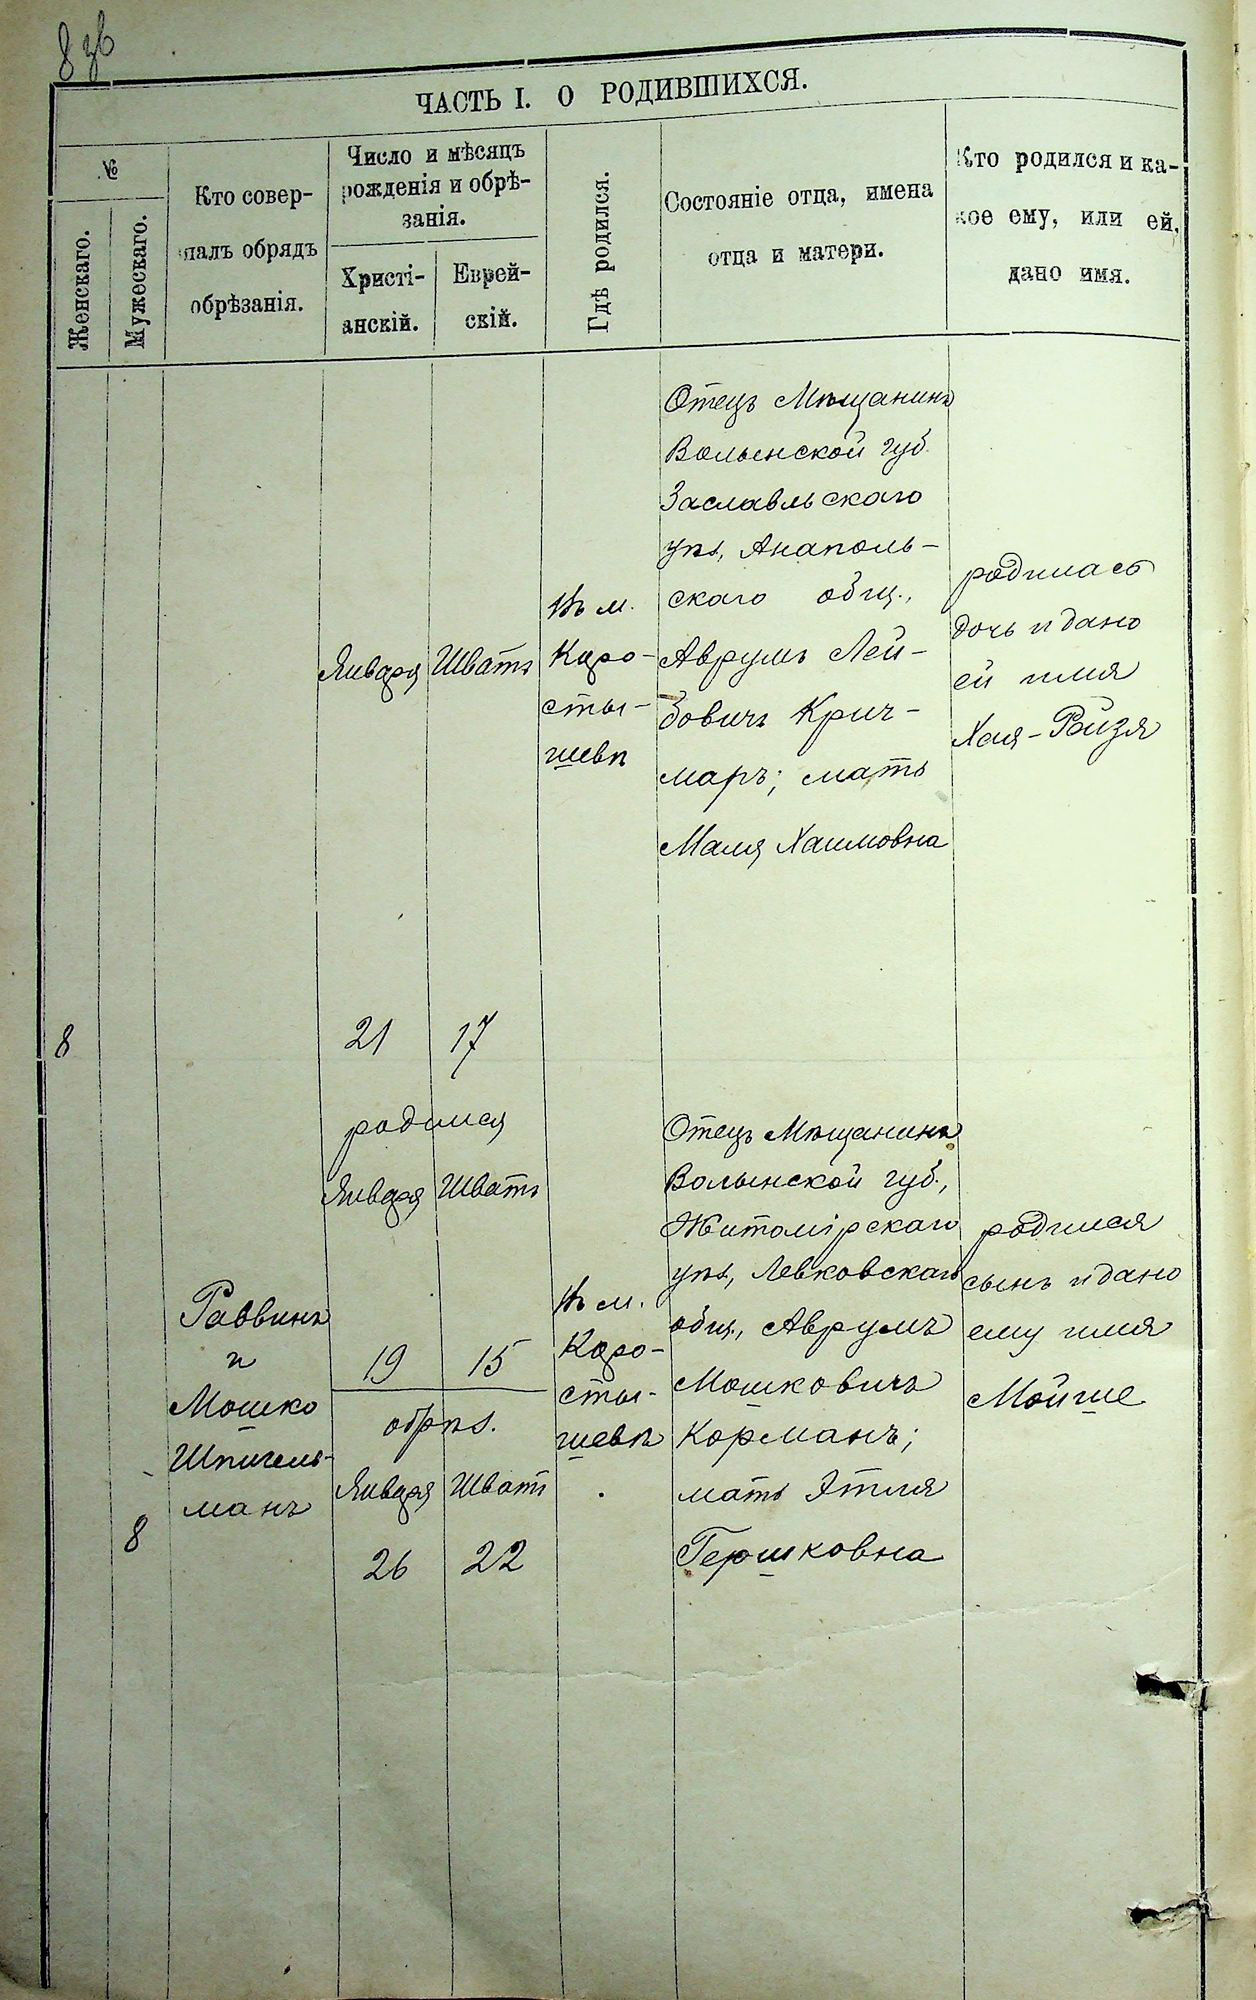 8 зв
ЧАСТЬ I. О РОДИВШИХСЯ.
№
Женскаго.
Мужескаго.
Кто совер-
шалъ обрядъ
обрѣзанія.
Число и мѣсяцъ
рожденія и обрѣ-
занія.
Христі-
анскій.
Еврей-
скій.
Гдѣ родился.
Состояніе отца, имена
отца и матери.
Кто родился и ка-
кое ему, или ей,
дано имя.
8
Января
21
Шватъ
17
Въ м.
Коро-
сты-
шевѣ
Отецъ Мѣщанинъ
Волынской губ.
Заславльскаго
уѣз, Анаполь-
скаго общ.,
Аврумъ Лей-
бовичъ Крич-
маръ; мать
Маля Хаимовна
родилась
дочь и дано
ей имя
Хая-Ройзя
8
Раввинъ
и
Мошко
Шпигель-
манъ
родился
Января Шватъ
19 15
обрѣз.
Января Шватъ
26 22
Въ м.
Коро-
сты-
шевѣ
.
Отецъ Мѣщанинъ
Волынской губ.,
Житомірскаго
уѣз, Левковскаго
общ., Аврумъ
Мошковичъ
Корманъ;
мать Этля
Гершковна
родился
сынъ и дано
ему имя
Мойше